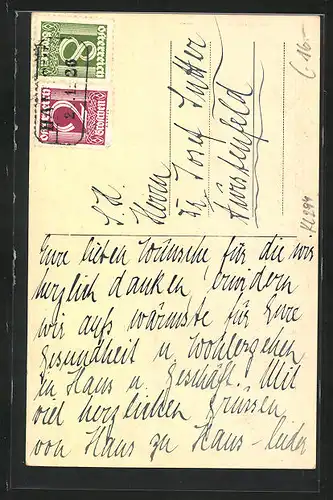 8
Groschen
2
Groschen
S. H.
Herrn
Dr. Josef Sutter
Fürstenfeld
£16-
Eure lieben Wünsche, für die wir
herzlich danken, erwidern
wir aufs wärmste für Eure
Gesundheit u. Wohlergehen
in Haus u. Geschäft. Mit
viel herzlichen Grüssen
von Haus zu Haus - leider